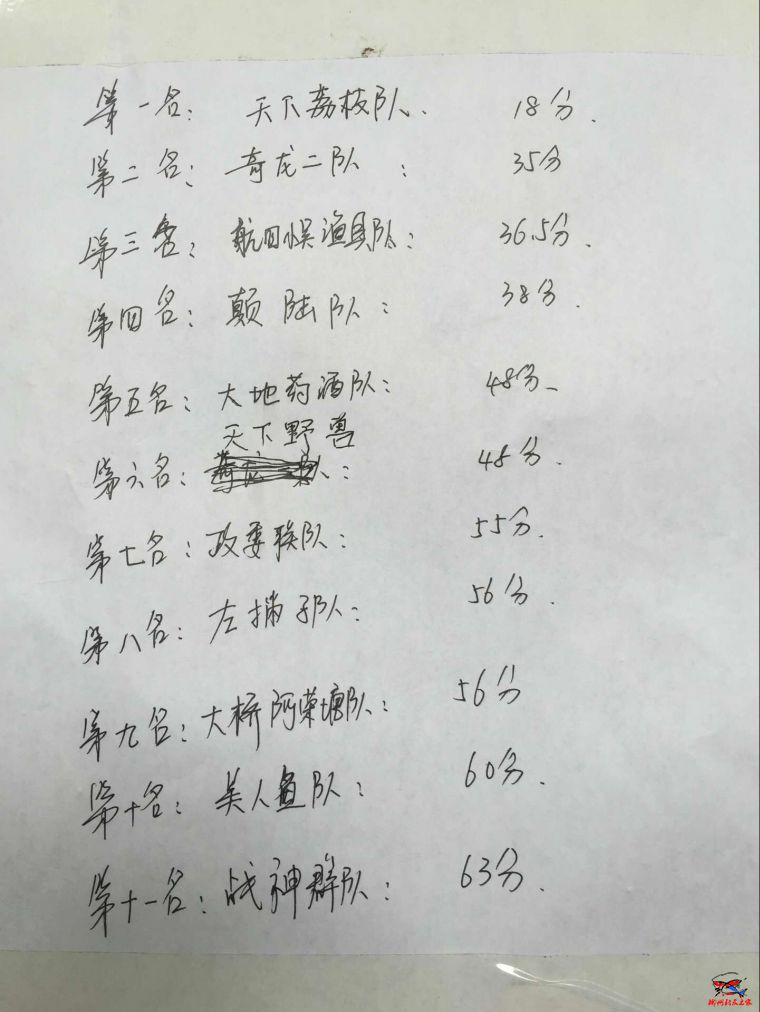 第一名： 天下荔枝队. 18分.
第二名： 奇龙二队： 35分
第三名： 航日娱渔具队： 36.5分.
第四名： 颠陆队： 38分.
第五名： 大地药酒队： 48分
天下野兽
第六名： 队： 48分.
第七名： 政委联队： 55分.
第八名： 左捕子队： 56分.
第九名： 大桥阿荣塘队： 56分
第十名： 美人鱼队： 60分.
第十一名： 战神群队： 63分.